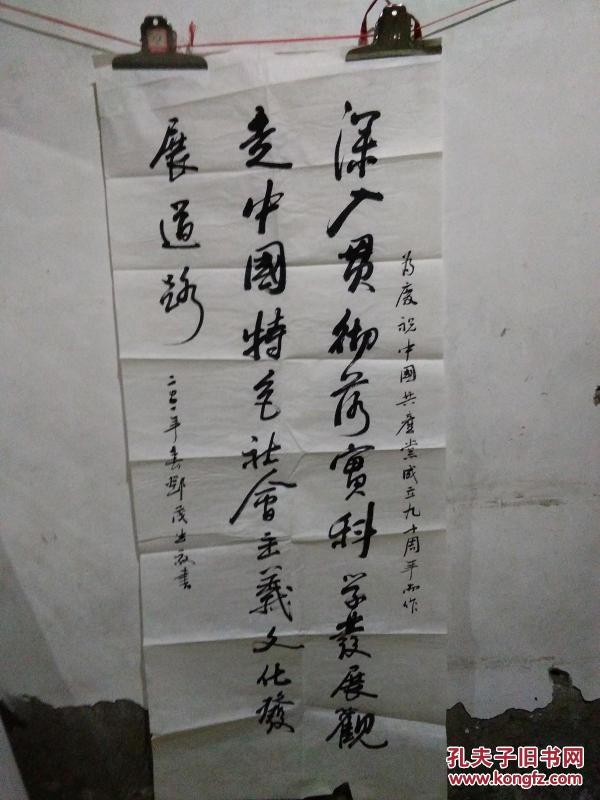 为慶祝中國共產黨成立九十周年而作
深入贯彻落實科学發展觀
走中國特色社會主義文化發
展道路
年春鄧茂書
孔夫子旧书网
www.kongfz.com